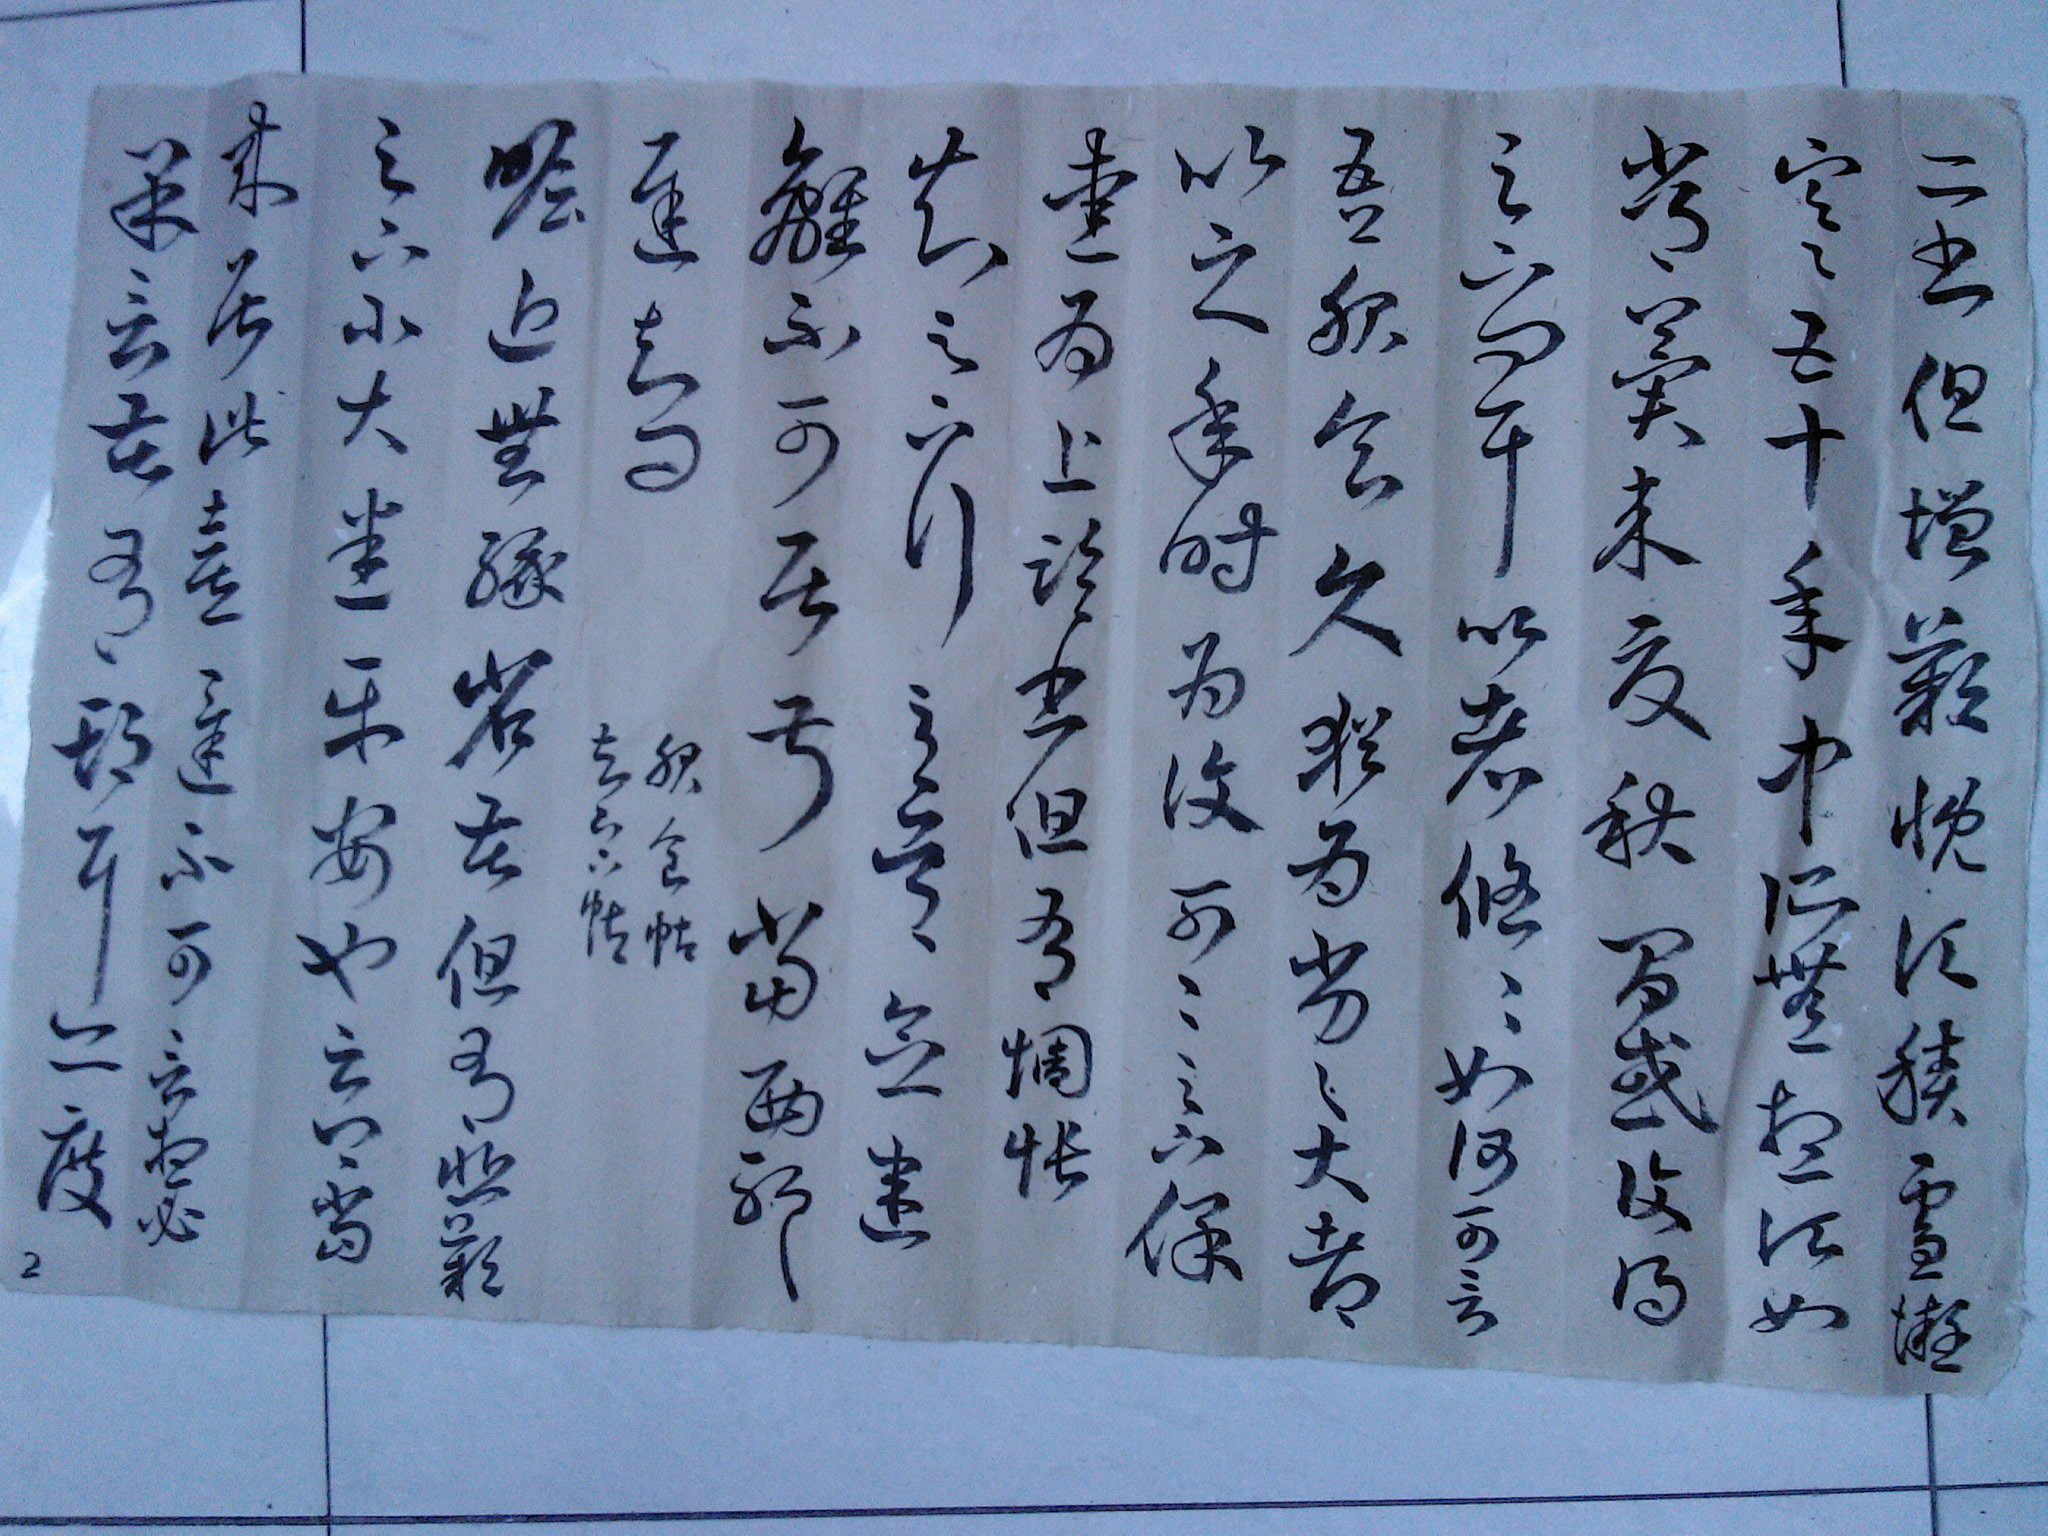 二書但增歎慨頃積雪凝
寒五十年中所無想頃如
常冀來夏秋間或復得
足下問耳比者悠〻如何可言
吾服食久猶為劣〻大都
比之年時為復可〻足下保
愛為上臨書但有惆悵
知足下行至吳念違
離不可居叔當西耶
遲知問
服食帖
知足下帖
瞻近無緣省苦但有悲歎
足下小大悉平安也云卿當
來居此喜遲不可言想必
果言苦有期耳亦度
2